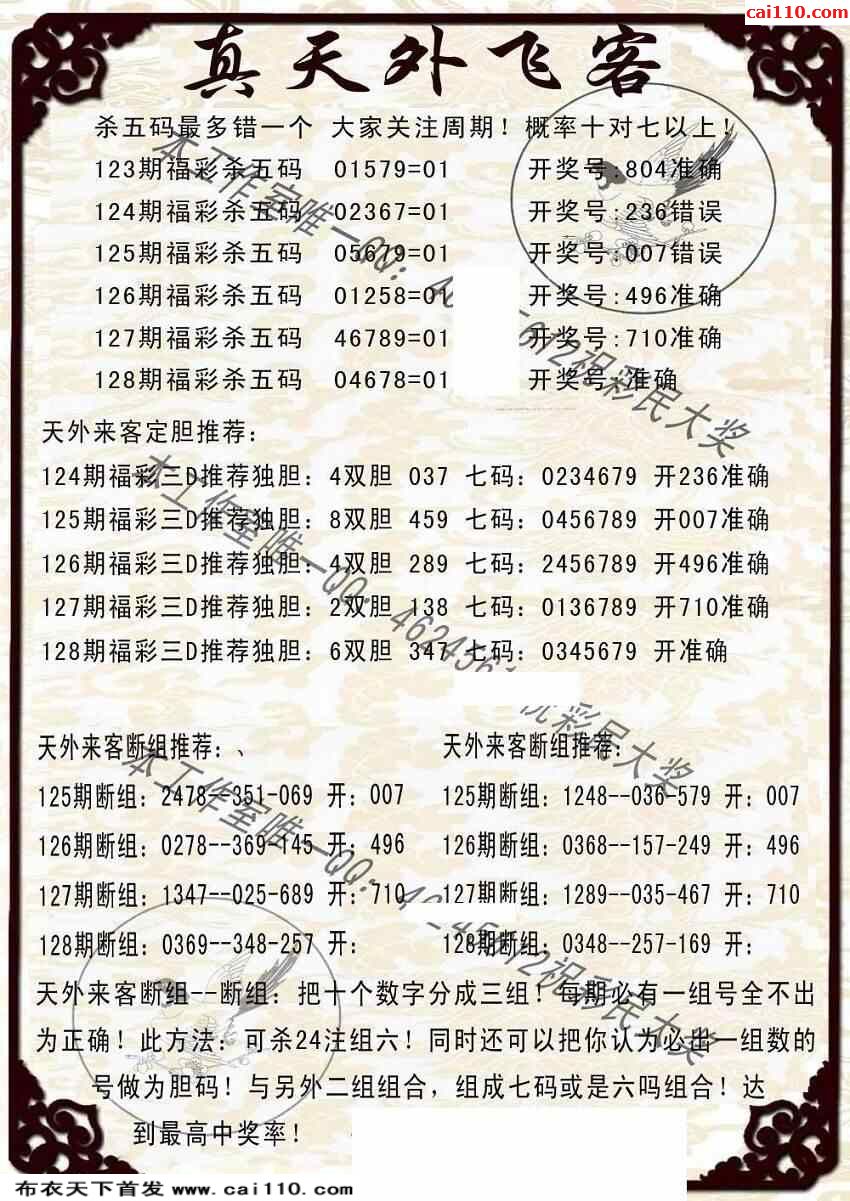 cai110.com
真天外飞客
杀五码最多错一个 大家关注周期！概率十对七以上！
123期福彩杀五码 01579=01 开奖号:804准确
124期福彩杀五码 02367=01 开奖号:236错误
125期福彩杀五码 05679=01 开奖号:007错误
126期福彩杀五码 01258=01 开奖号:496准确
127期福彩杀五码 46789=01 开奖号:710准确
128期福彩杀五码 04678=01 开奖号:准确
天外来客定胆推荐：
124期福彩三D推荐独胆：4双胆 037 七码：0234679 开236准确
125期福彩三D推荐独胆：8双胆 459 七码：0456789 开007准确
126期福彩三D推荐独胆：4双胆 289 七码：2456789 开496准确
127期福彩三D推荐独胆：2双胆 138 七码：0136789 开710准确
128期福彩三D推荐独胆：6双胆 347 七码：0345679 开准确
天外来客断组推荐：、 天外来客断组推荐：
125期断组：2478--351-069 开：007 125期断组：1248--036-579 开：007
126期断组：0278--369-145 开：496 126期断组：0368--157-249 开：496
127期断组：1347--025-689 开：710 127期断组：1289--035-467 开：710
128期断组：0369--348-257 开： 128期断组：0348--257-169 开：
天外来客断组--断组：把十个数字分成三组！每期必有一组号全不出
为正确！此方法：可杀24注组六！同时还可以把你认为必出一组数的
号做为胆码！与另外二组组合，组成七码或是六吗组合！达
到最高中奖率！
本工作室唯一QQ：
祝彩民大奖
本工作室唯一QQ：
彩民大奖
本工作室唯一QQ：
祝彩民大奖
布衣天下首发 www.cai110.com